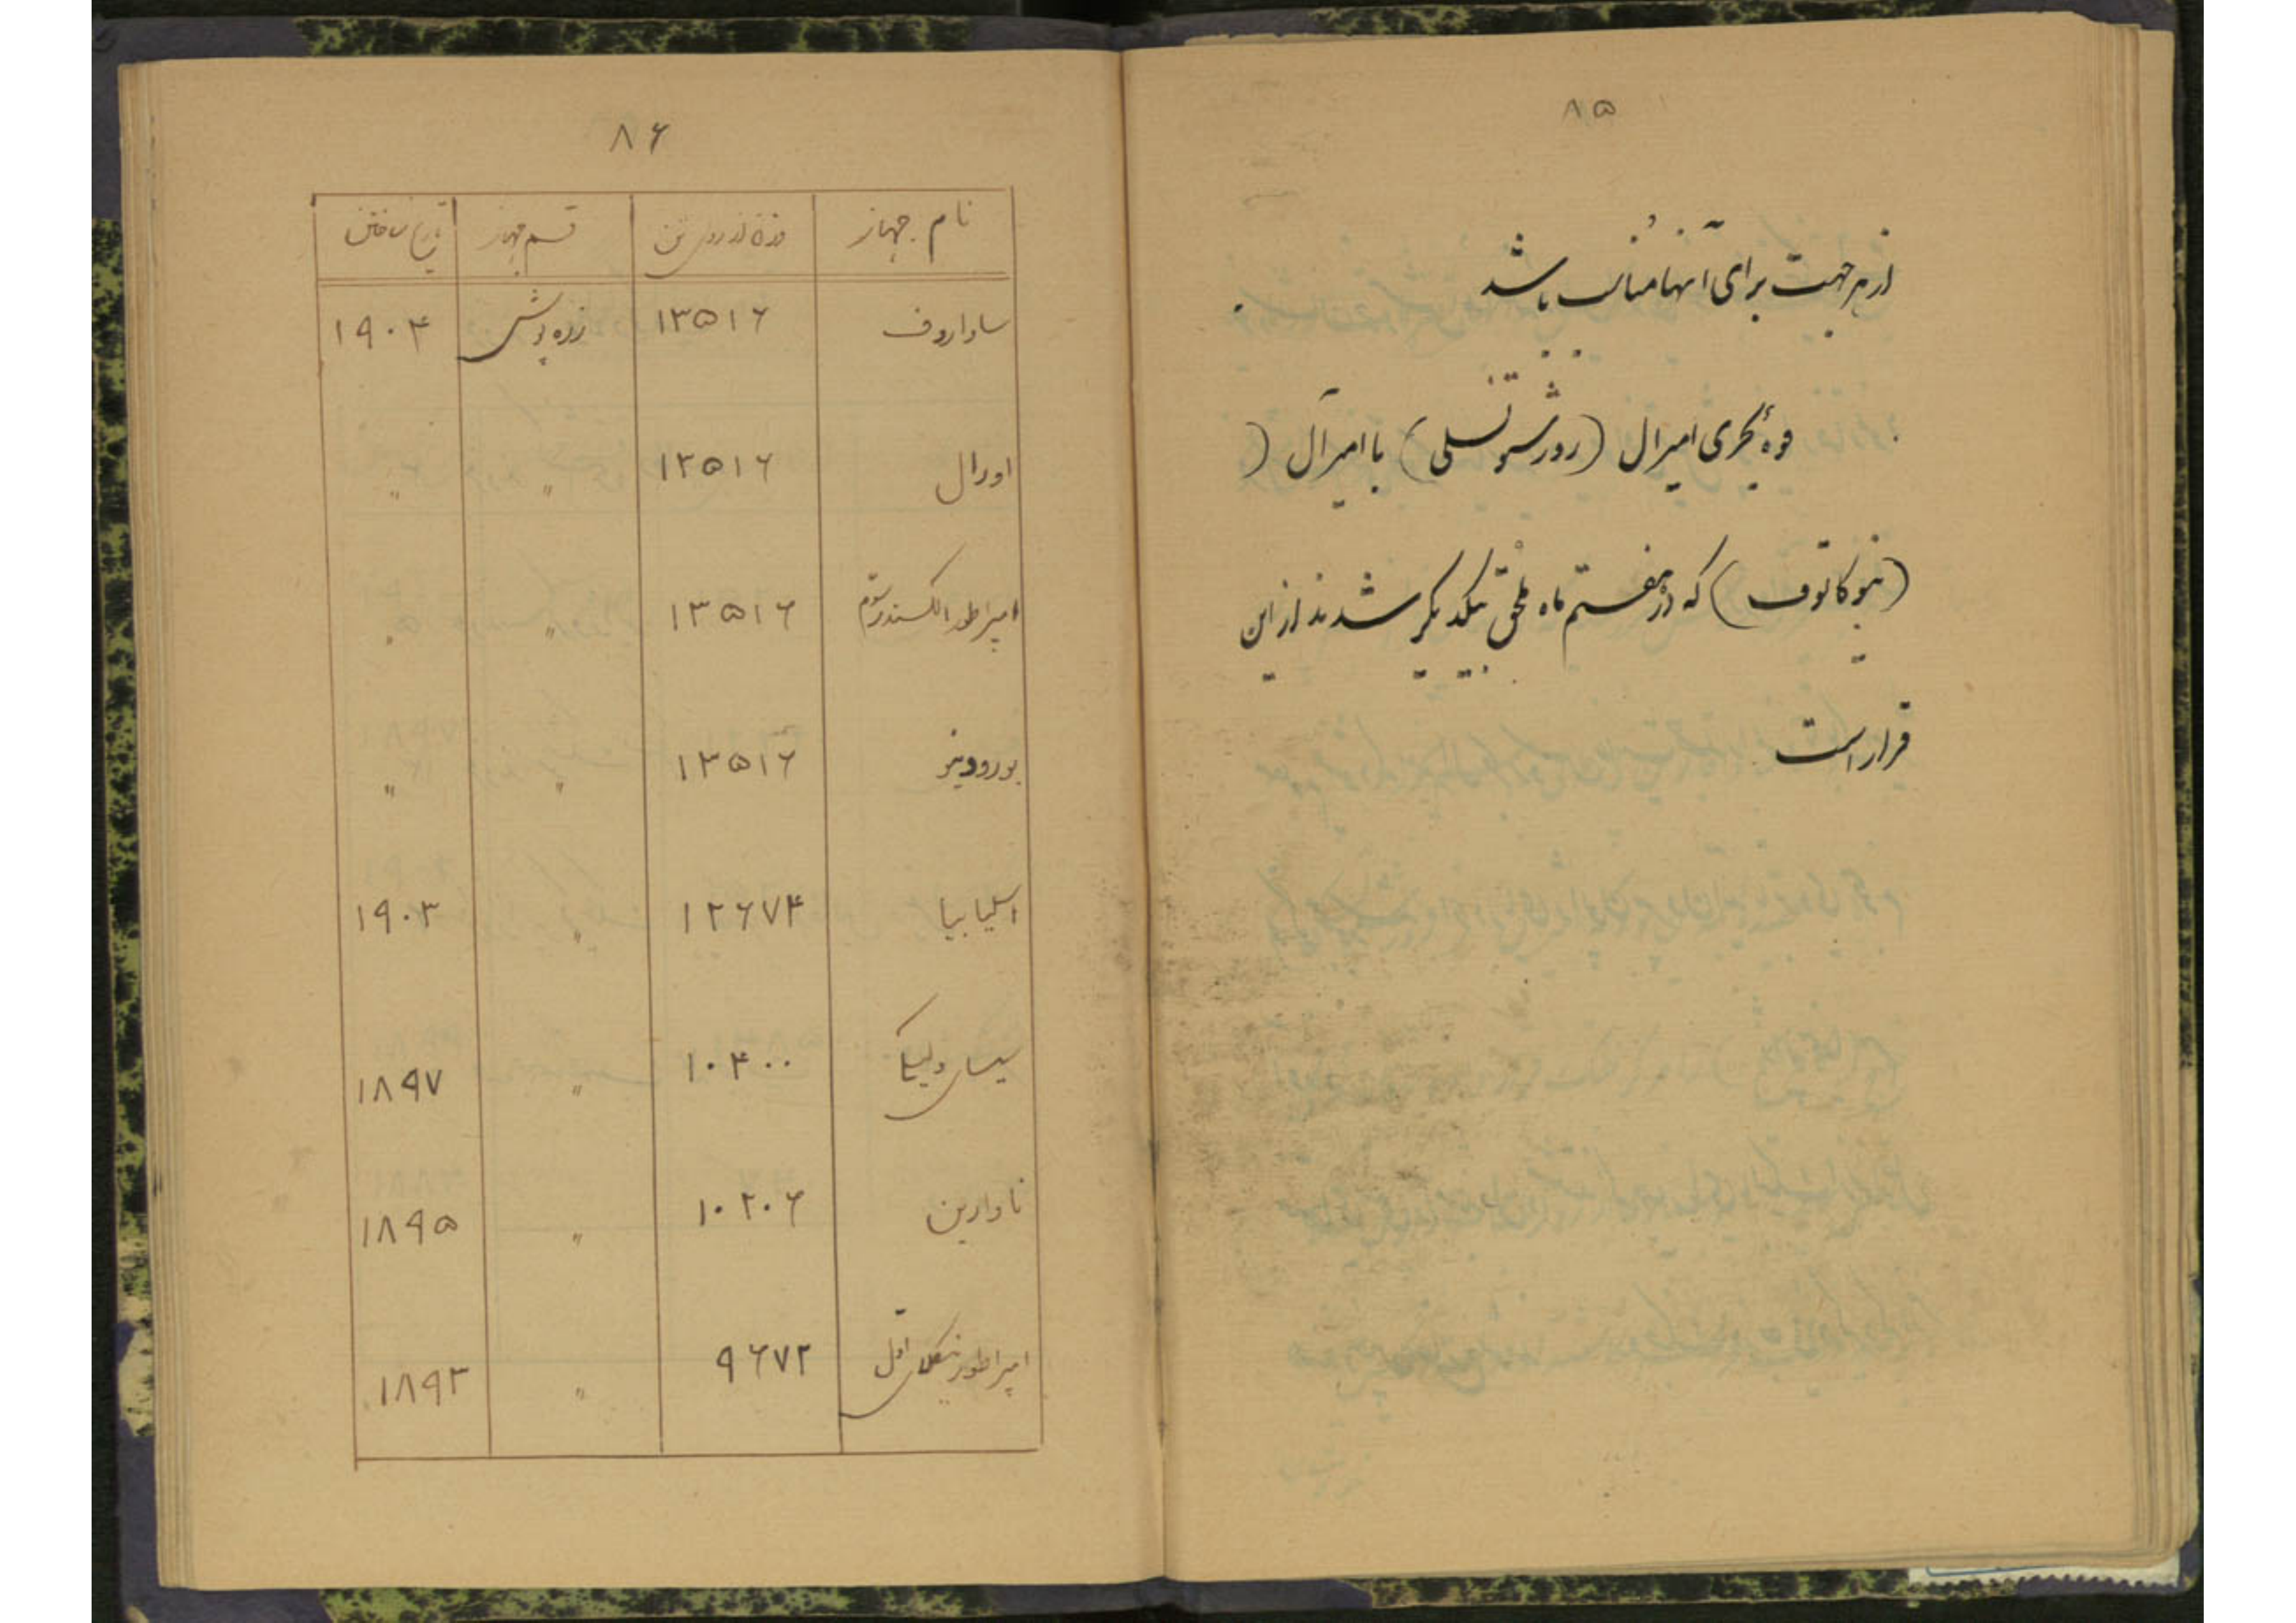 ۸۵
از هر جهت برای آنها مناسب باشد
قوهٔ بحری امیرال (روژستونسلی) با امیرآل (
(نیوکاتوف) که در هفتم ماه ملحق بیکدیگر شدند از این
قرار است
۸۶
نام جهاز وزن از روی تن قسم جهاز تاریخ ساختن
ساواروف ۱۳۵۱۶ زره پوش ۱۹۰۴
اورال ۱۳۵۱۶ " "
امپراطور الکسندر سوم ۱۳۵۱۶ " "
بورودینو ۱۳۵۱۶ " "
اسلیابیا ۱۲۶۷۴ " ۱۹۰۳
سیسای ولیکی ۱۰۴۰۰ " ۱۸۹۷
ناوارین ۱۰۲۰۶ " ۱۸۹۵
امپراطور نیکلای اول ۹۶۷۲ " ۱۸۹۳